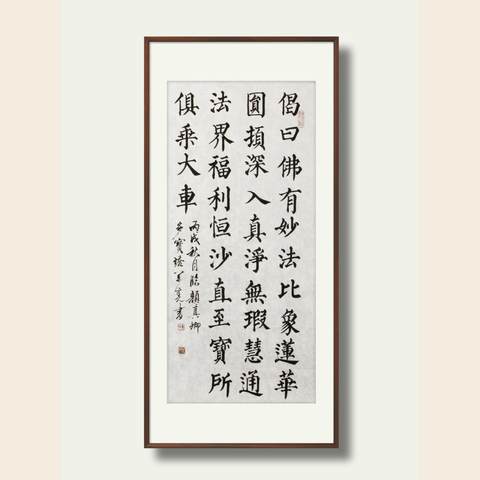 偈曰佛有妙法比象蓮華
圓頓深入真淨無瑕慧通
法界福利恒沙直至寶所
俱乘大車
丙戌秋月臨顏真卿
多寶塔